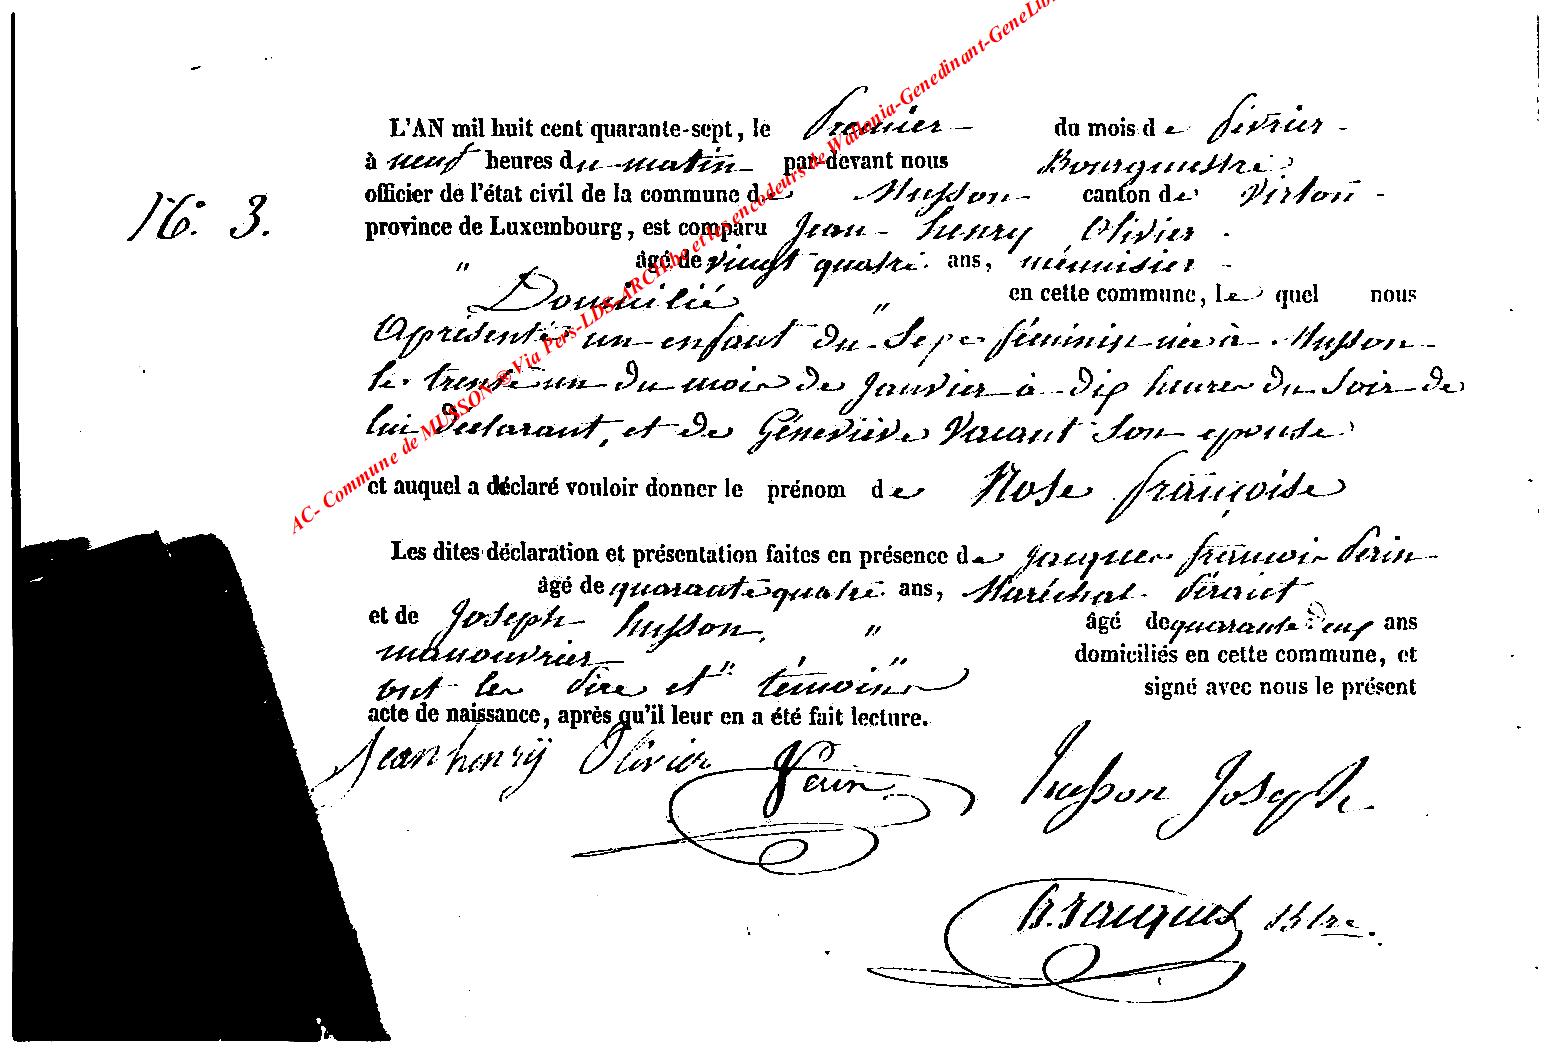 L'AN mil huit cent quarante-sept, le Premier du mois de février
à neuf heures du matin par-devant nous Bourgmestre
officier de l'état civil de la commune de Musson canton de Virton
N° 3.
province de Luxembourg, est comparu Jean henry Olivier
" âgé de vingt quatre ans, ménuisier
Domicilié " en cette commune, lequel nous
aprésenté un enfant du Sexe féminin née à Musson
le trente un du mois de Janvier à dix heures du Soir de
lui Déclarant, et de Géneviève Vacant Son epouse
et auquel a déclaré vouloir donner le prénom de Rose françoise
Les dites déclaration et présentation faites en présence de Jacques françois Perin
âgé de quarante quatre ans, Maréchal férant
et de Joseph husson, " âgé de quarante Deux ans
manouvrier domiciliés en cette commune, et
ont les dire et témoins signé avec nous le présent
acte de naissance, après qu'il leur en a été fait lecture.
Jean henrÿ Olivier Perin husson Joseph
AC- Commune de MUSSON ® Via Pers-LDS-ARCH.be et les encodeurs de Wallonia-Genedinant-GeneLib